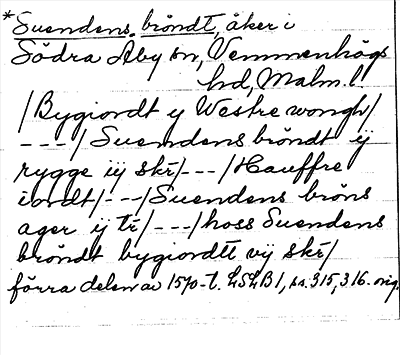 *Suendens bröndt, åker i
Södra Åby sn, Vemmenhögs
hd, Malm. l.
/Bygiordt y Westre wongh/
---/Suendens bröndt ÿ
rygge iij skr/---/Hauffre
iordt/---/Suendens bröns
ager ij tr/---/hoss Suendens
bröndt bygiordtt vij skr/
förra delen av 1570-t. LSLB1, ss. 315, 316. orig.